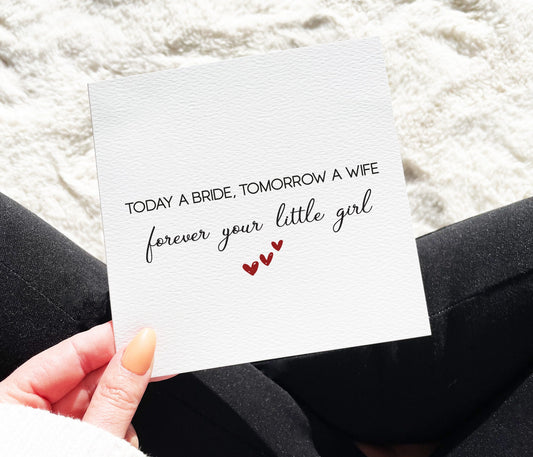 TODAY A BRIDE, TOMORROW A WIFE
forever your little girl